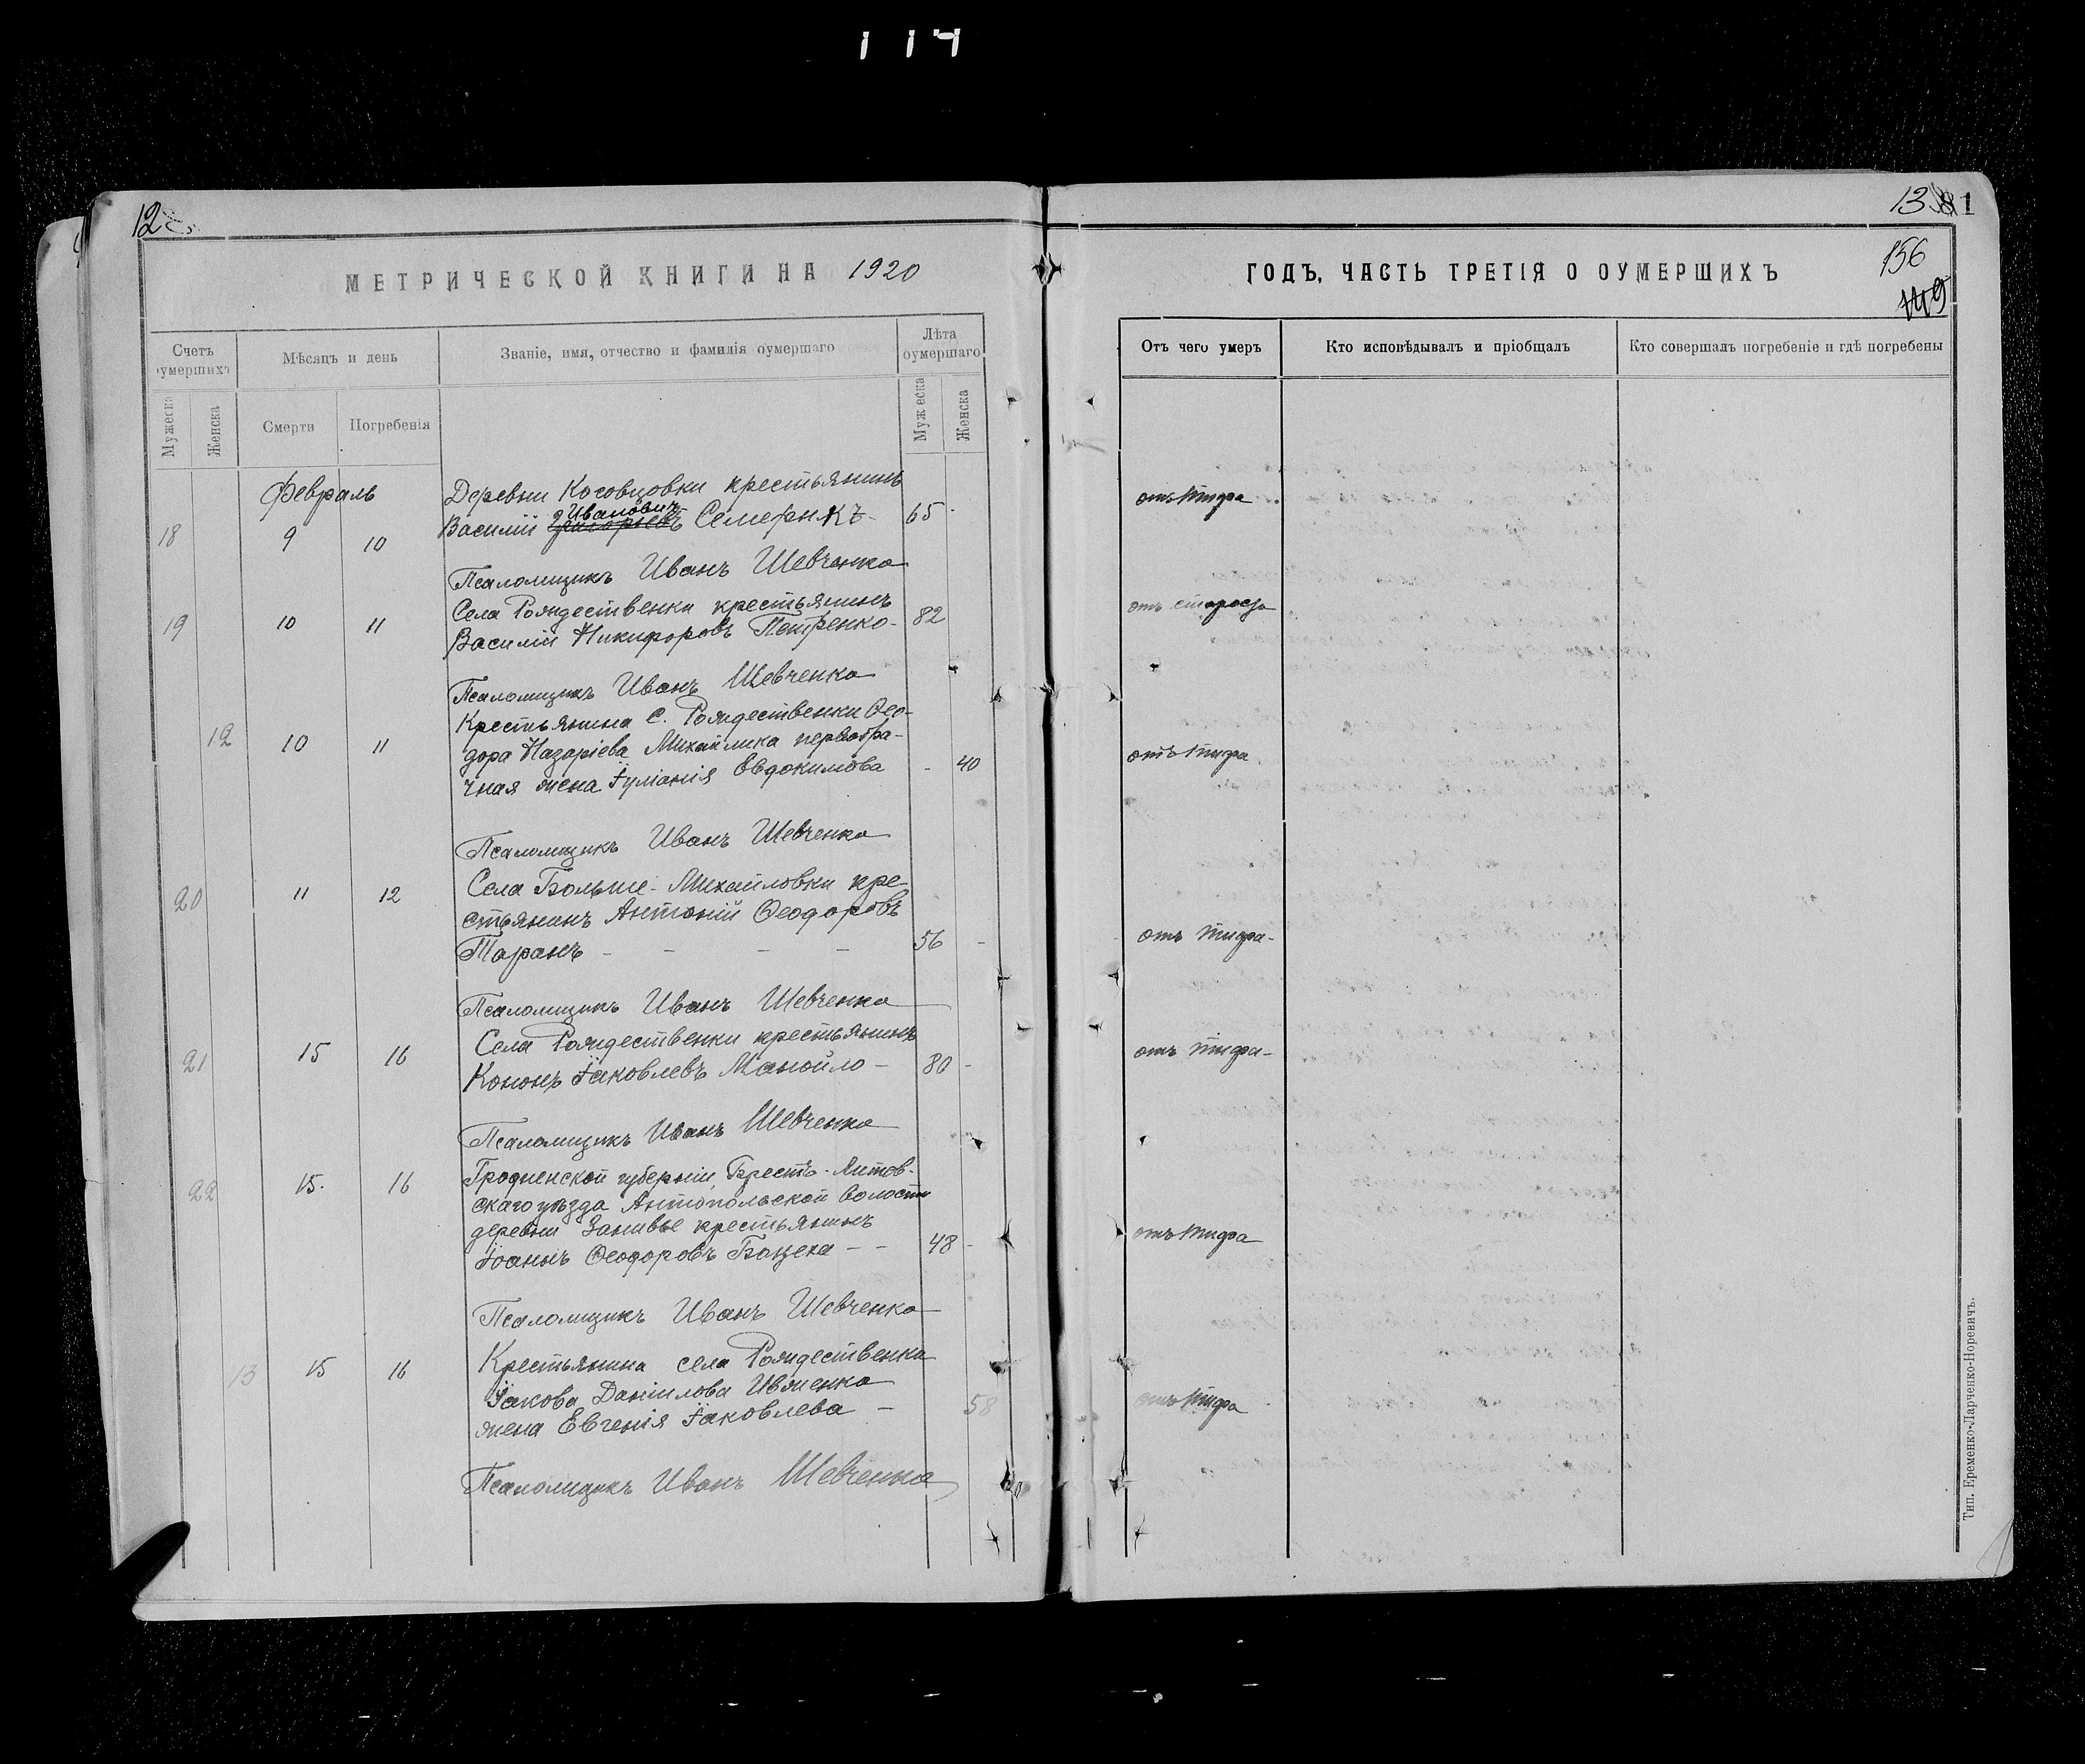 114
12
МЕТРИЧЕСКОЙ КНИГИ НА 1920
Счетъ умершихъ
Мѣсяцъ и день
Званіе, имя, отчество и фамилія оумершаго
Лѣта оумершаго
Мужеска
Женска
Смерти
Погребенія
Мужеска
Женска
Февраль
Деревни Косовцовки крестьянинъ
18 9 10 Василій Григорьевъ Ивановичъ Семерикъ - 65
Псаломщикъ Иванъ Шевченко
Села Рождественки крестьянинъ
19 10 11 Василій Никифоровъ Петренко - 82
Псаломщикъ Иванъ Шевченко
Крестьянина с. Рождественки Ѳео-
12 10 11 дора Назаріева Михайлика первобра-
чная жена Іуліанія Евдокимова - 40
Псаломщикъ Иванъ Шевченко
20 11 12 Села Больше-Михайловки кре
стьянинъ Антоній Ѳеодоровъ
Таранъ - - - - 56 -
Псаломщикъ Иванъ Шевченко
Села Рождественки крестьянинъ
21 15 16 Кононъ Іаковлевъ Манойло - 80 -
Псаломщикъ Иванъ Шевченко
22 15 16 Гродненской губерніи, Брестъ-Литов-
скаго уѣзда Антопольской волости
деревни крестьянинъ
Іоаннъ Ѳеодоровъ - - 48 -
Псаломщикъ Иванъ Шевченко
13 15 16 Крестьянина села Рождественки
Іакова Даніилова Ивженко
жена Евгенія Іаковлева - 58
Псаломщикъ Иванъ Шевченко
13 81
156
149
ГОДЪ, ЧАСТЬ ТРЕТІЯ О ОУМЕРШИХЪ
Отъ чего умеръ
Кто исповѣдывалъ и пріобщалъ
Кто совершалъ погребеніе и гдѣ погребены
отъ тифа
отъ старости
отъ тифа
отъ тифа -
отъ тифа -
отъ тифа
отъ тифа
Тип. Еременко-Ларченко-Норевичъ.